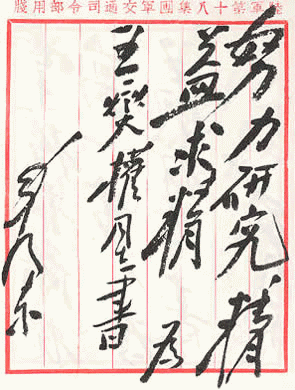 陸軍第十八集團軍交通司令部用牋
努力研究,精
益求精 为
王燮權同志書
毛泽东